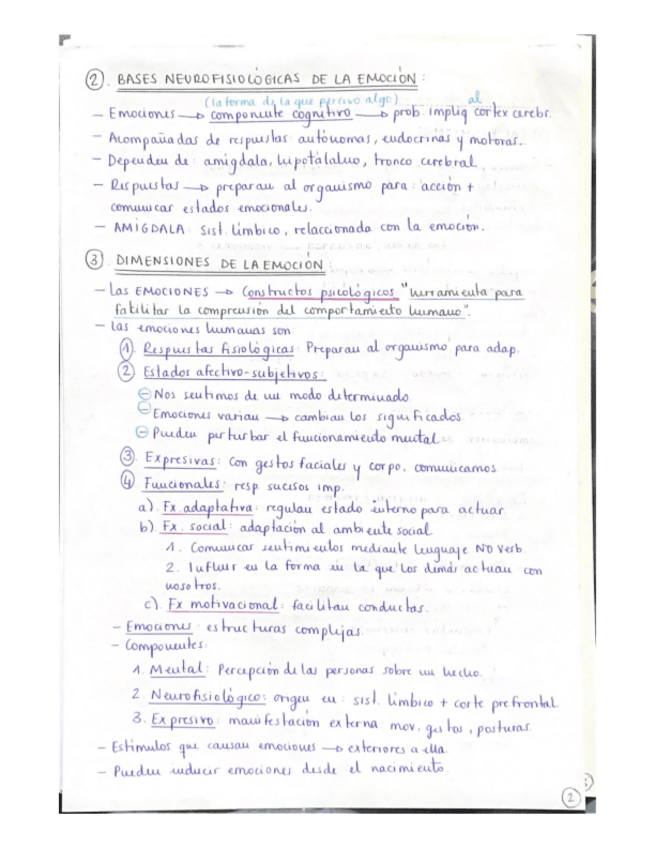 ② BASES NEUROFISIOLÓGICAS DE LA EMOCIÓN:
(la forma de la que percivo algo) al
- Emociones → componente cognitivo → prob. impliq cortex cerebr.
- Acompañadas de respuestas autónomas, endocrinas y motoras.
- Dependen de: amígdala, hipotálamo, tronco cerebral
- Respuestas → preparan al organismo para: acción +
comunicar estados emocionales.
- AMÍGDALA: Sist. límbico, relaccionada con la emoción.
③ DIMENSIONES DE LA EMOCIÓN:
- Las EMOCIONES → Constructos psicológicos "herramienta para
facilitar la comprensión del comportamiento humano".
- Las emociones humanas son
① Respuestas fisiológicas: Preparan al organismo para adap.
② Estados afectivo-subjetivos:
⊖ Nos sentimos de un modo determinado
⊖ Emociones varian → cambian los significados
⊖ Pueden perturbar el funcionamiento mental
③ Expresivas: con gestos faciales y corpo. comunicamos
④ Funcionales: resp. sucesos imp.
a). Fx adaptativa: regulan estado interno para actuar
b). Fx. social: adaptación al ambiente social
1. Comunicar sentimientos mediante lenguaje NO verb.
2. Influir en la forma en la que los demás actuan con
nosotros.
c). Fx motivacional: facilitan conductas.
- Emociones: estructuras complejas.
- Componentes:
1. Mental: Percepción de las personas sobre un hecho.
2. Neurofisiológico: origen en: sist. límbico + corte prefrontal
3. Expresivo: manifestación externa: mov, gestos, posturas
- Estímulos que causan emociones → exteriores a ella
- Pueden inducir emociones desde el nacimiento.
②